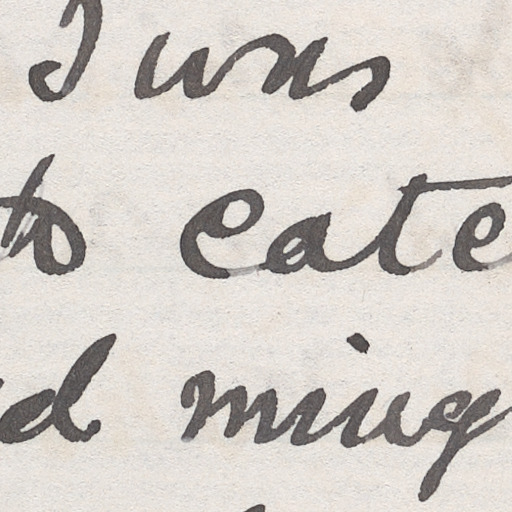 I was
to cate
d ming